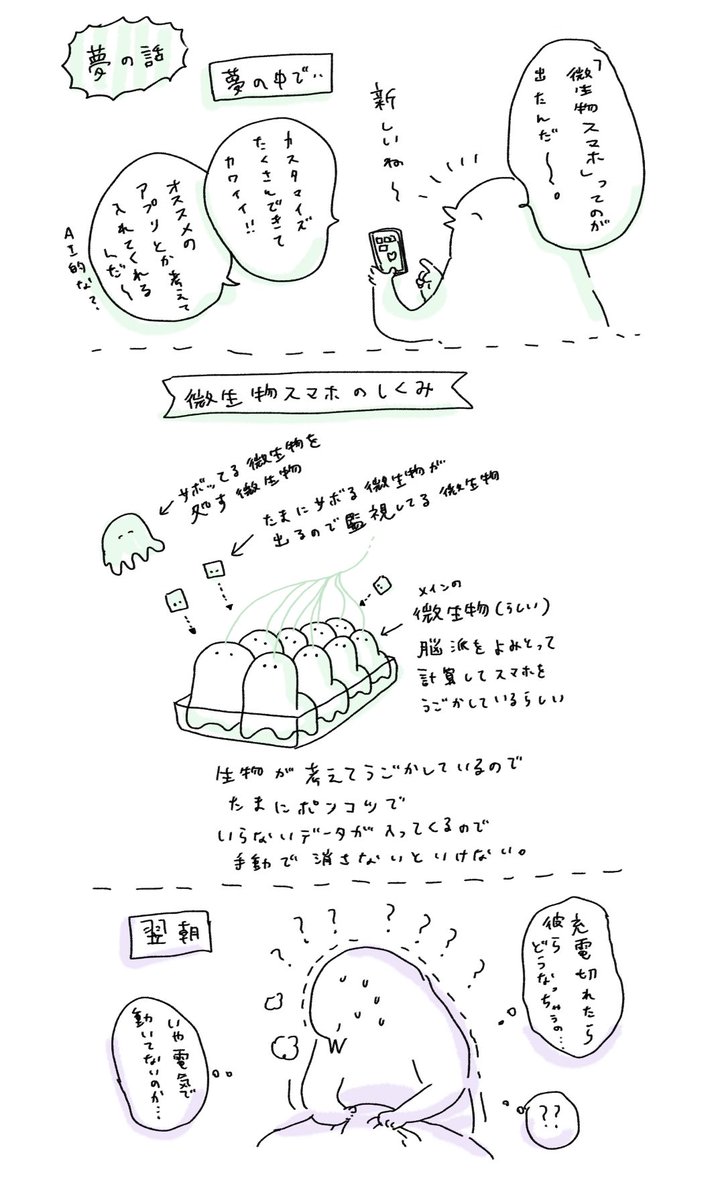 夢の話
夢の中で‥
「微生物
スマホ」ってのが
出たんだ〜〜。
新しいね〜
カスタマイズ
たくさんできて
カワイイ!!
オススメの
アプリとか考えて
入れてくれる
んだ〜
AI的な?
微生物スマホのしくみ
サボッてる微生物を
処す微生物
たまにサボる微生物が
出るので監視してる微生物
メインの
微生物(うしい)
脳派をよみとって
計算してスマホを
うごかしているらしい
生物が考えてうごかしているので
たまにポンコツで
いらないデータが入ってくるので
手動で消さないといけない。
翌朝
充電切れたら
彼ら
どうなっちゃうの…
いや電気で
動いてないのか…
??
? ? ? ? ? ? ? ?